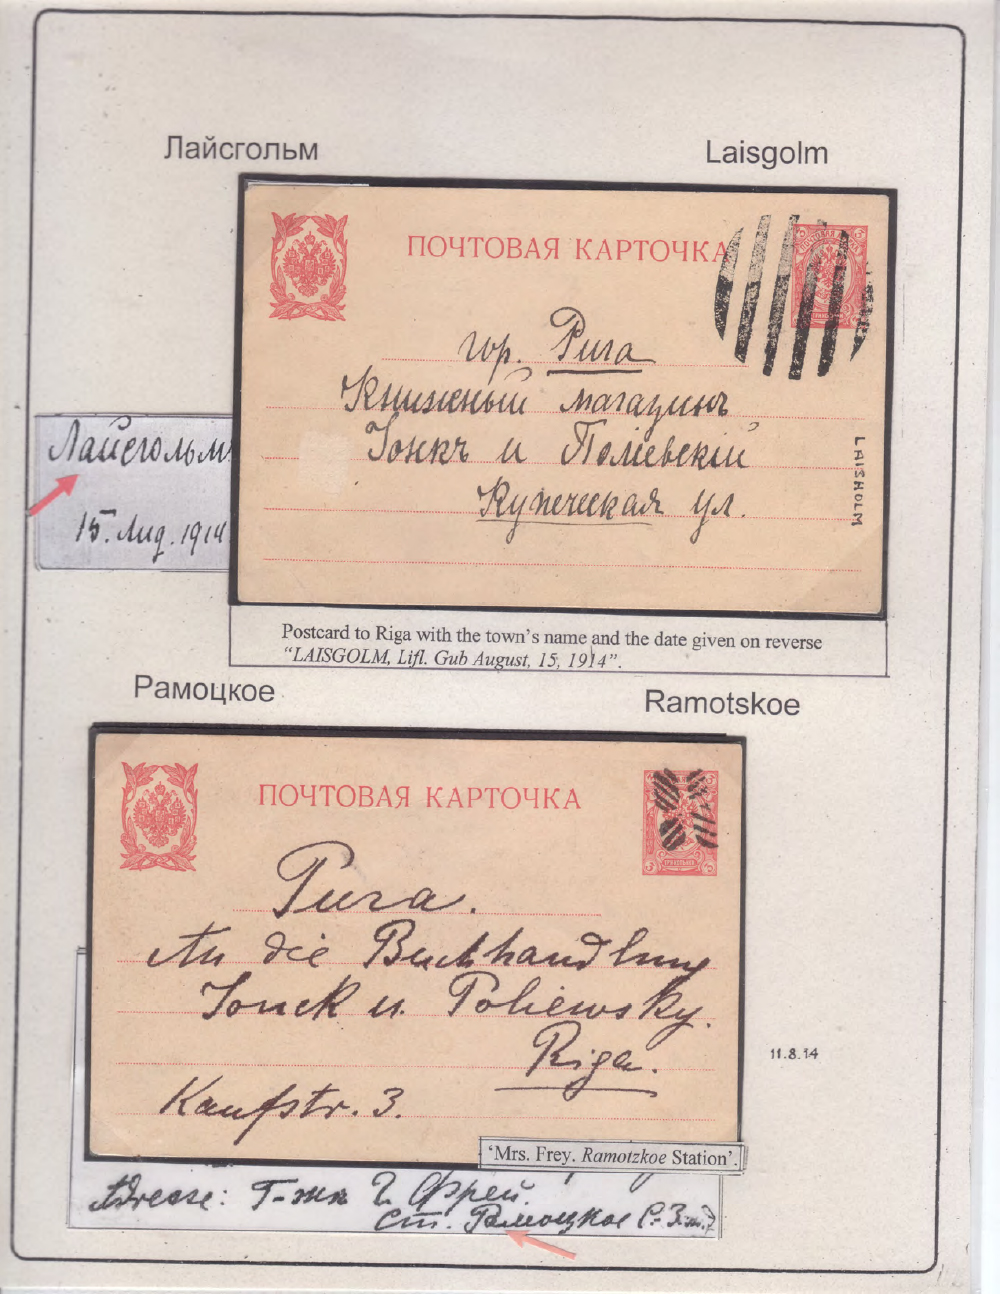 Лайсгольм
Laisgolm
ПОЧТОВАЯ КАРТОЧКА
гор. Рига
Книжный магазинъ
Іонкъ и Поліевскій
Купеческая ул.
LAISHOLM
Лайсгольм
15. Aug. 1914
Postcard to Riga with the town's name and the date given on reverse
"LAISGOLM, Lifl. Gub August, 15, 1914".
Рамоцкое
Ramotskoe
ПОЧТОВАЯ КАРТОЧКА
Рига.
An die Buchhandlung
Jonck u. Poliewsky.
Riga.
Kaufstr. 3.
11.8.14
'Mrs. Frey. Ramotzkoe Station'.
Adresse: Г-жа Г. Фрей.
ст. Рамоцкое